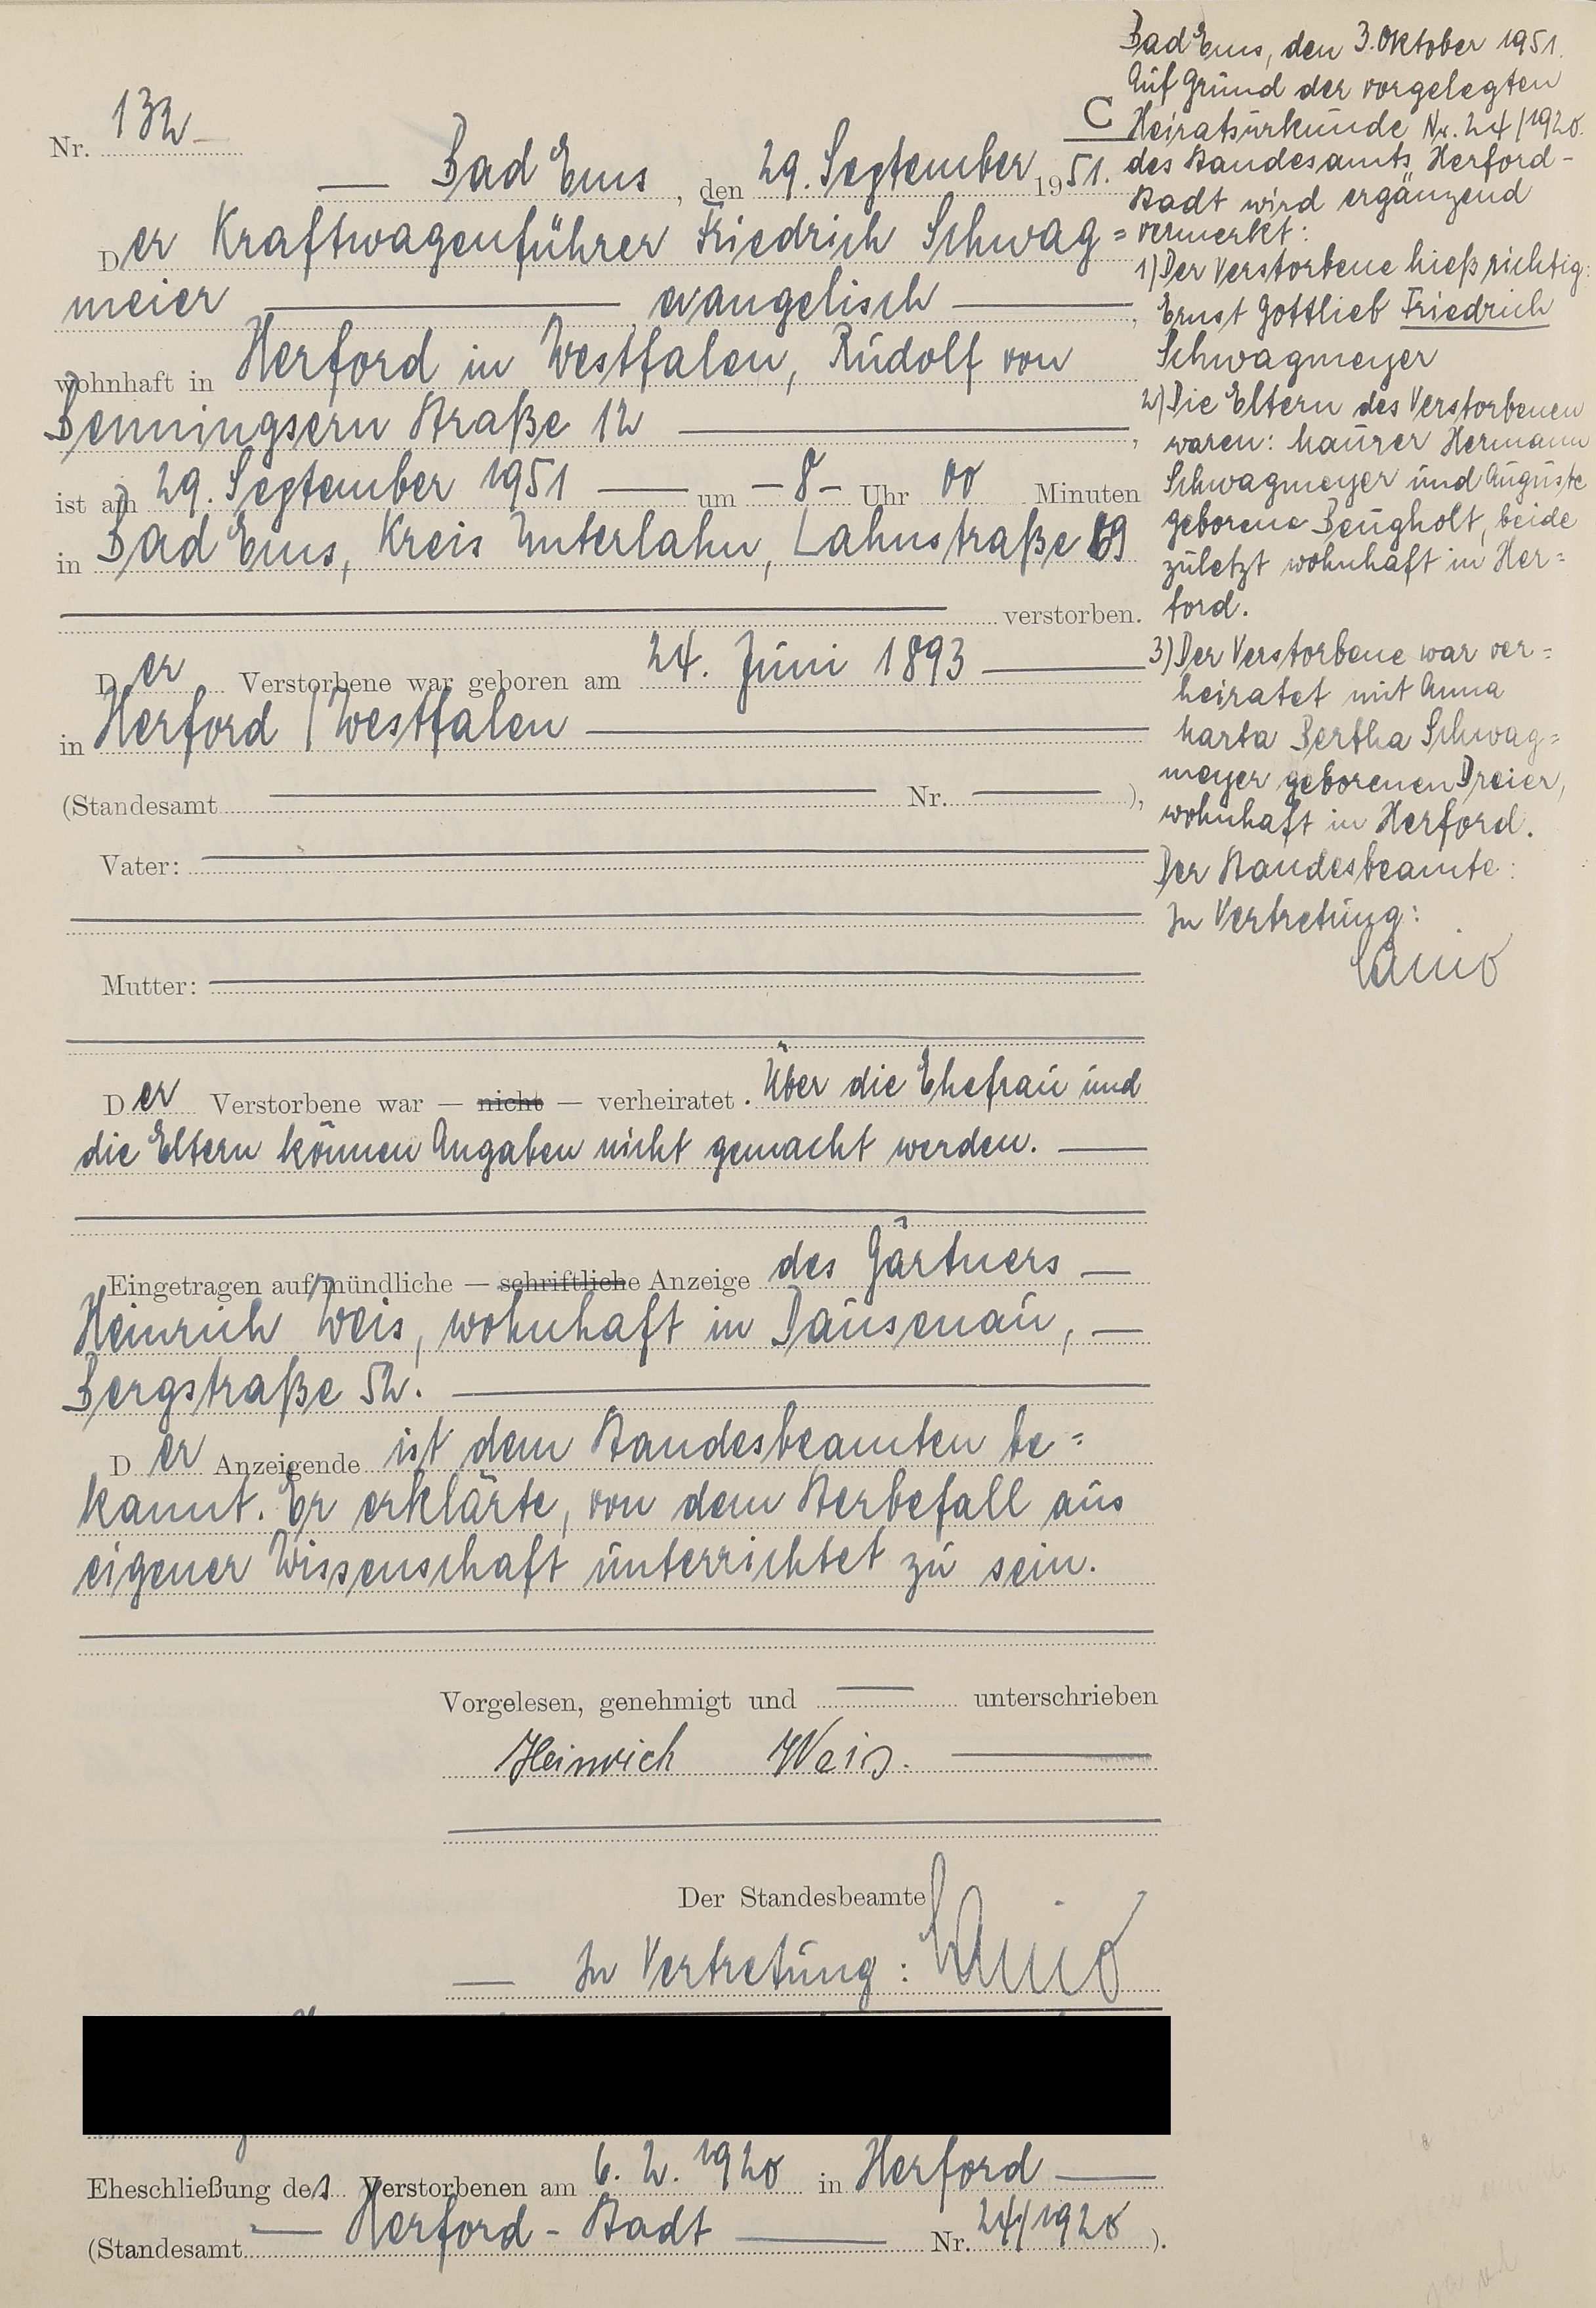 Nr. 132
C
Bad Ems, den 29. September 1951.
Der Kraftwagenführer Friedrich Schwag=
meier evangelisch,
wohnhaft in Herford in Westfalen, Rudolf von
Benningsern Straße 12,
ist am 29. September 1951 um -8- Uhr 00 Minuten
in Bad Ems, Kreis Unterlahn, Lahnstraße 89
verstorben.
Der Verstorbene war geboren am 24. Juni 1893
in Herford / Westfalen
(Standesamt Nr. ),
Vater:
Mutter:
Der Verstorbene war — nicht — verheiratet. Über die Ehefrau und
die Eltern können Angaben nicht gemacht werden.
Eingetragen auf mündliche — schriftliche Anzeige des Gärtners
Heinrich Weis, wohnhaft in Dausenau,
Bergstraße 52.
Der Anzeigende ist dem Standesbeamten be=
kannt. Er erklärte, von dem Sterbefall aus
eigener Wissenschaft unterrichtet zu sein.
Vorgelesen, genehmigt und unterschrieben
Heinrich Weis.
Der Standesbeamte
In Vertretung:
Eheschließung des Verstorbenen am 6. 2. 1920 in Herford
(Standesamt Herford - Stadt Nr. 24/1920).
Bad Ems, den 3. Oktober 1951.
Auf Grund der vorgelegten
Heiratsurkunde Nr. 24/1920
des Standesamts Herford-
Stadt wird ergänzend
vermerkt:
1) Der Verstorbene hieß richtig:
Ernst Gottlieb Friedrich
Schwagmeyer
2) Die Eltern des Verstorbenen
waren: Maurer Hermann
Schwagmeyer und Auguste
geborene Beugholt, beide
zuletzt wohnhaft in Her=
ford.
3) Der Verstorbene war ver=
heiratet mit Anna
Marta Bertha Schwag=
meyer geborenen Dreier,
wohnhaft in Herford.
Der Standesbeamte:
In Vertretung: